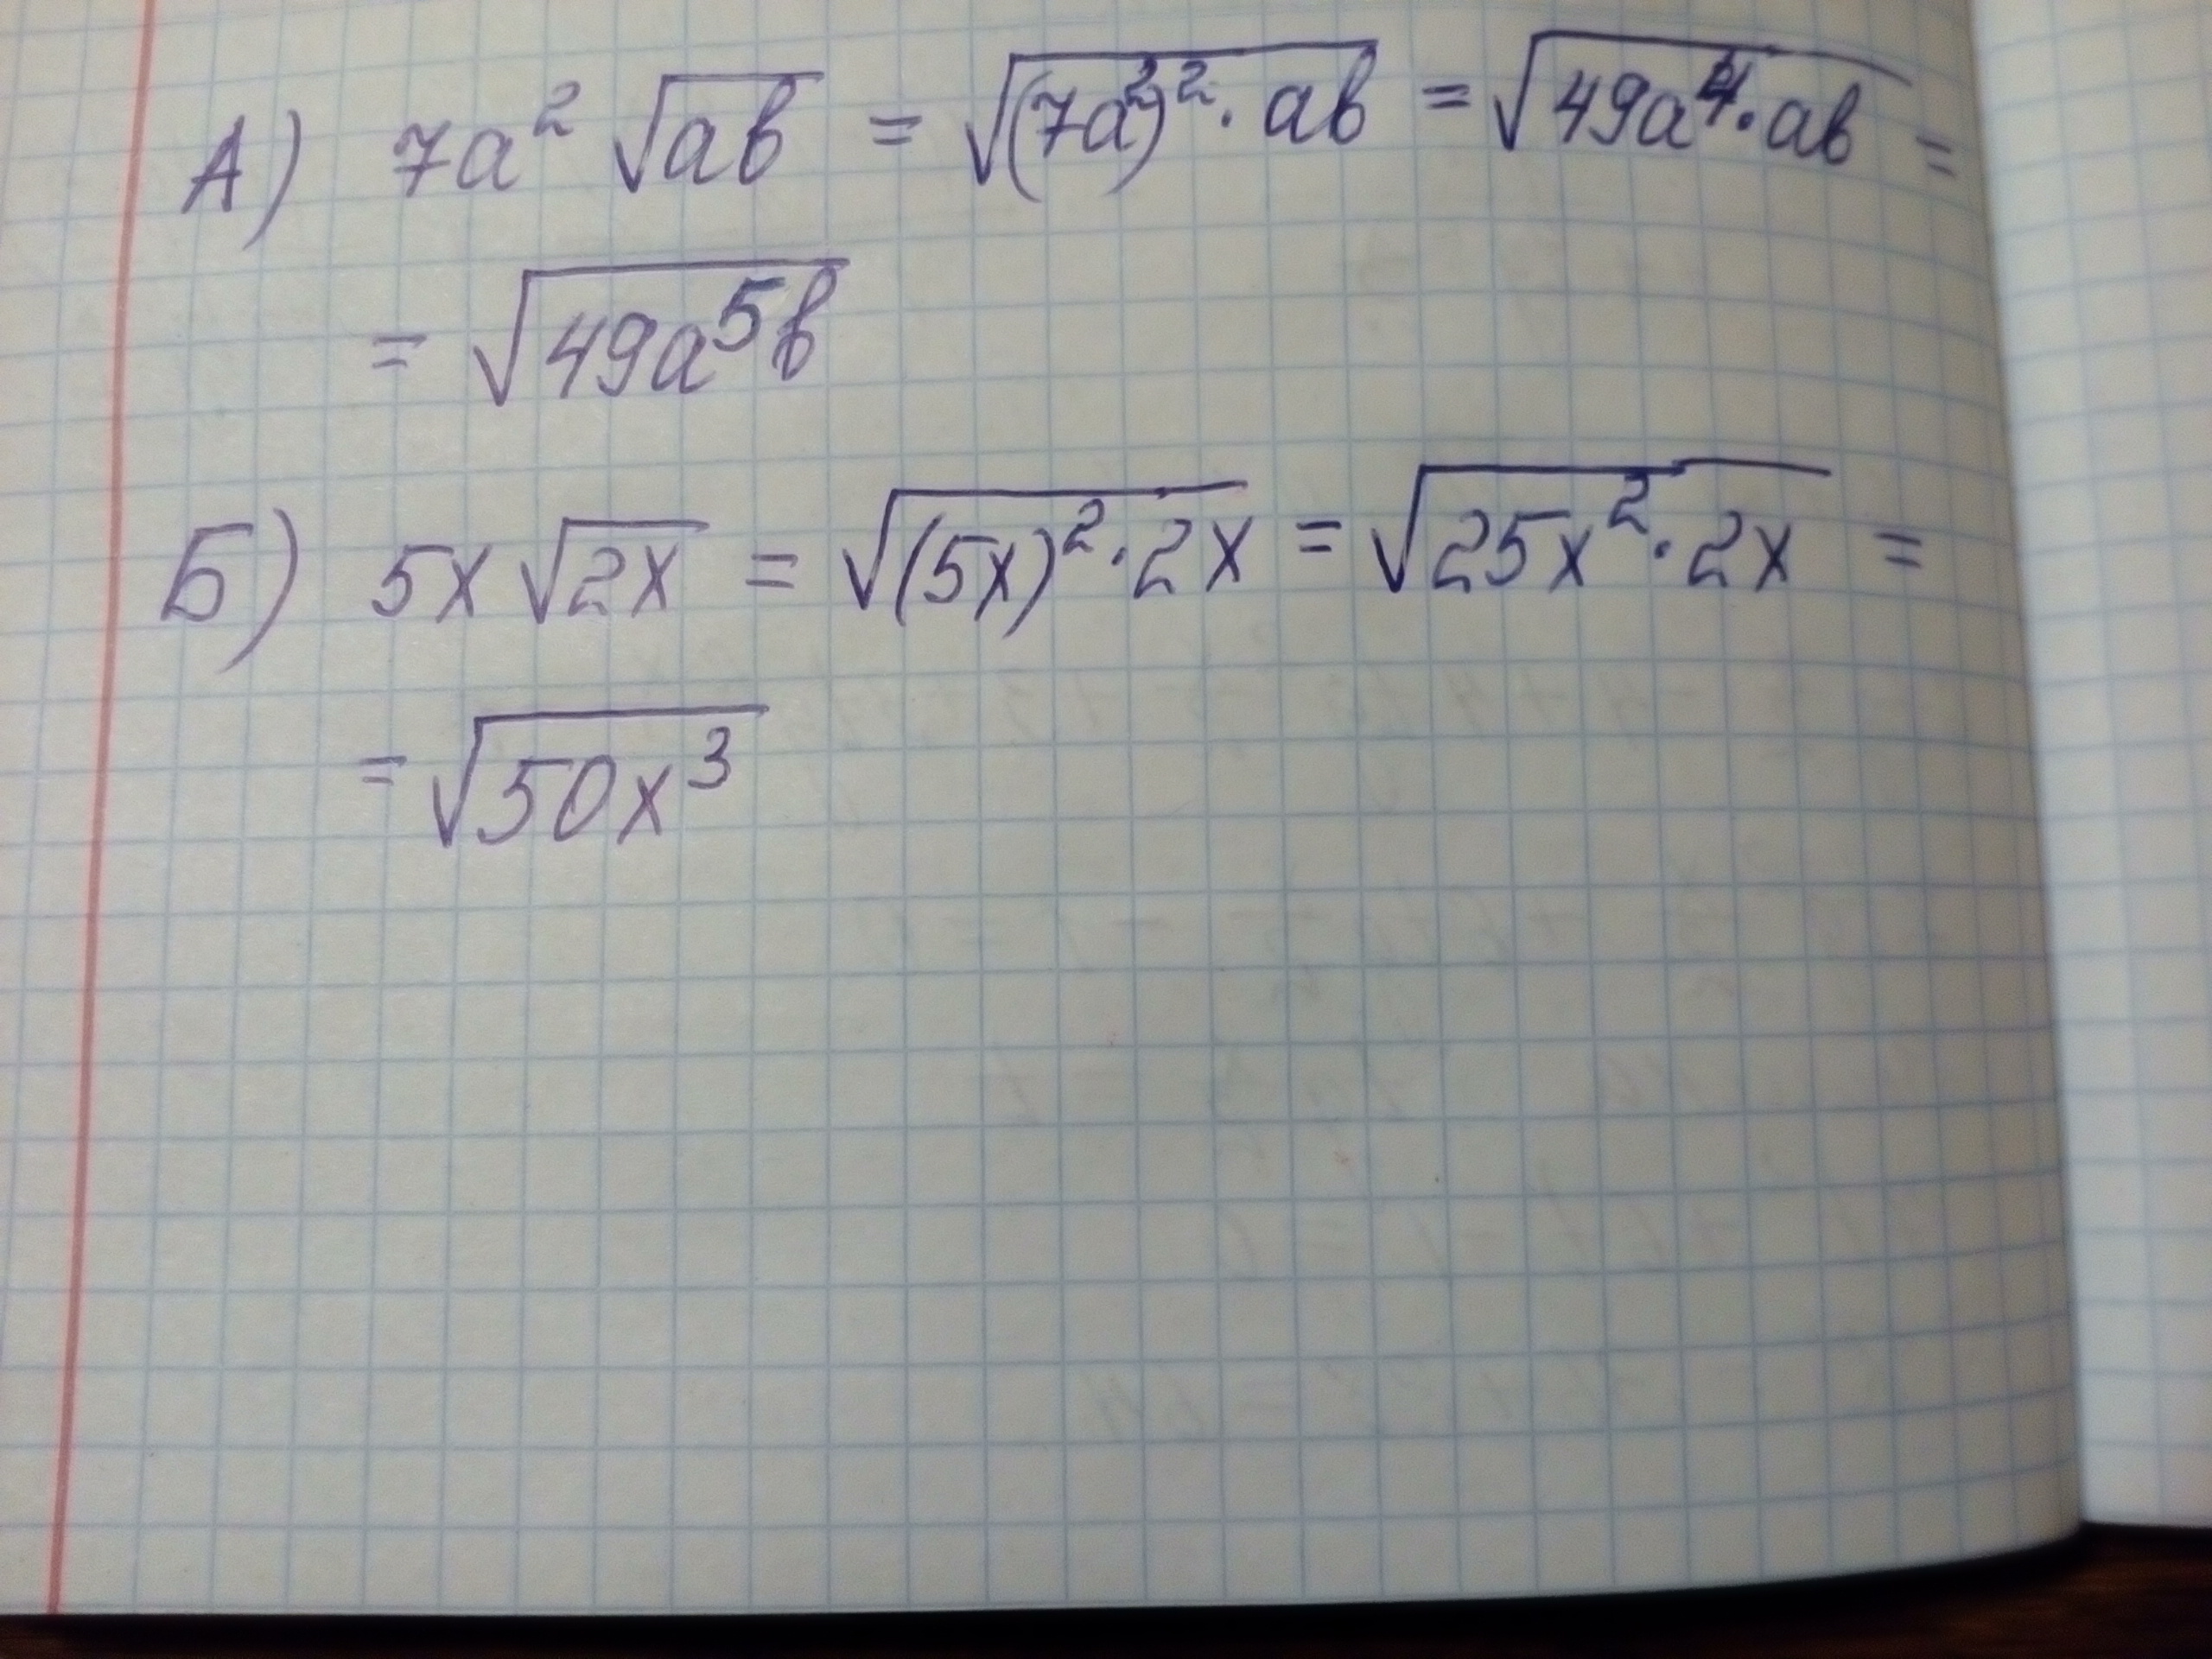 А) 7a² √ab = √(7a²)² · ab = √49a⁴ · ab =
= √49a⁵b
Б) 5x √2x = √(5x)² · 2x = √25x² · 2x =
= √50x³